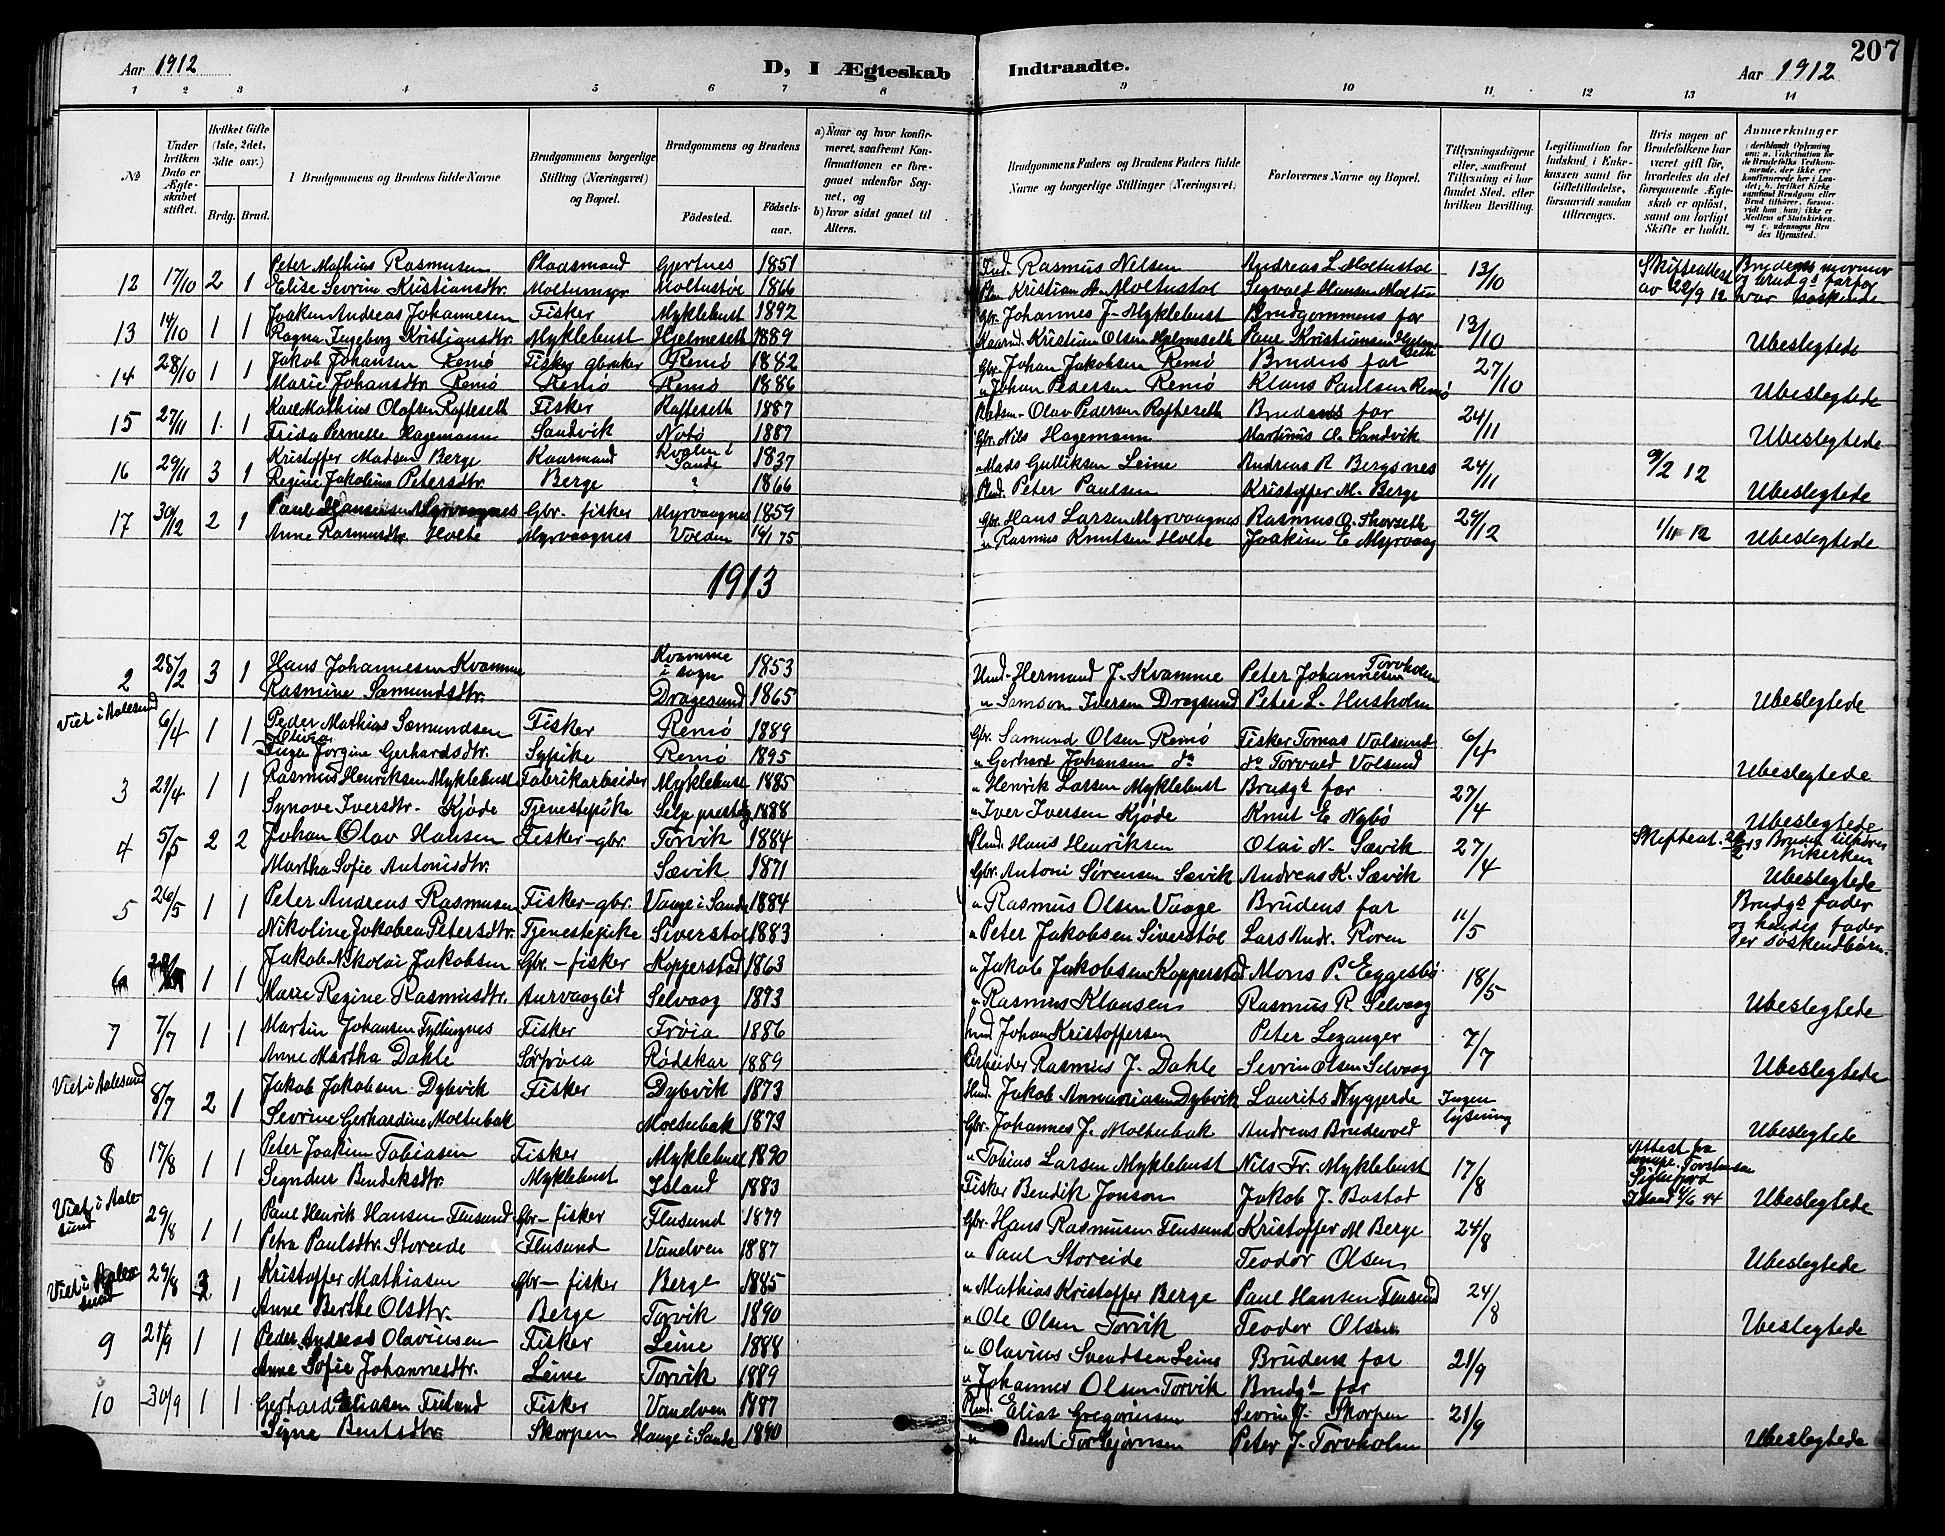 207
Aar 1912
D, I Ægteskab Indtraadte.
Aar 1912
1 2 3 4 5 6 7 8 9 10 11 12 13 14
No
Under hvilken Dato er Ægteskabet stiftet.
Hvilket Gifte (1ste, 2det, 3die osv.)
Brdg. Brud.
1 Brudgommens og Brudens fulde Navne
Brudgommens borgerlige Stilling (Næringsvei) og Bopæl.
Brudgommens og Brudens
Födested.
Födselsaar.
a) Naar og hvor konfirmeret, saafremt Konfirmationen er foregaaet udenfor Sognet, og
b) hvor sidst gaaet til Alters.
Brudgommens Faders og Brudens Faders fulde Navne og borgerlige Stillinger (Næringsvei).
Forlovernes Navne og Bopæl.
Tillysningsdögene eller, saafremt Tillysning ei har fundet Sted, efter hvilken Bevilling.
Legitimation for Indskud i Enkekassen samt for Giftetilladelse, forsaavidt saadan tiltrænges.
Hvis nogen af Brudefolkene har været gift för, hvorledes da det foregaaende Ægteskab er oplöst, samt om lovligt Skifte er holdt.
Anmærkninger
12 17/10 2 1 Peter Mathias Rasmussen Pladsmand Gjertnes 1851 Rasmus Nilsen Andreas L Moltustol 13/10 Skifteattest Brudens mormor
Elise Sevrine Kristiansdtr. Moltumyr Moltustöl 1866 Kristian A. Moltustol Segvald Hansen Moltu av 22/9 12 og brudgs farfar var søskende
13 14/10 1 1 Joakim Andreas Johannesen Fisker Myklebust 1892 Gbr. Johannes J. Myklebust Brudgommens far 13/10
Ragna Ingeborg Kristiansdtr. Myklebust Hjelmeseth 1889 Kristian Olsen Hjelmeseth Paul Kristiansen Hjelmeseth Ubeslegtede
14 28/10 1 1 Jakob Johansen Remö Fisker gbruker Remö 1882 Gbr. Johan Jakobsen Remö Brudens far 27/10
Marie Johansdtr. Remö Remö Remö 1886 " Johan Pedersen Remö Klaus Paulsen Remö Ubeslegtede
15 27/11 1 1 Karl Mathias Olafsen Rafteseth Fisker Rafteseth 1887 Olav Pedersen Rafteseth Brudens far 24/11
Frida Pernelle Hagemann Sandvik Notö 1887 Gbr. Nils Hagemann Martinus O. Sandvik Ubeslegtede
16 29/11 3 1 Kristoffer Madsen Berge Kaarmand Kvalen i Sande 1837 " Mads Gulliksen Leine Andreas R Bergsnes 24/11 9/2 12
Regine Jakobine Petersdtr. Berge " 1866 Peter Paulsen Kristoffer M. Berge Ubeslegtede
17 30/12 2 1 Paul Hansen Myrvaagnes Gbr. fisker Myrvaagnes 1859 Gbr. Hans Larsen Myrvaagnes Rasmus O. Thorseth 29/12 1/11 12
Anne Rasmusdtr. Holte Myrvaagnes Volden 14/1 75 " Rasmus Knutsen Holte Joakim E Myrvaag Ubeslegtede
1913
2 28/2 3 1 Hans Johannesen Kvamme Kvamme i sogn 1853 Hermund J. Kvamme Peter Johannesen Torvholm
Rasmine Samundsdtr. Dragesund 1865 " Samson Iversen Dragsund Peter L. Husholm Ubeslegtede
Viet i Aalesund 6/4 1 1 Peder Mathias Sæmundsen Fisker Remö 1889 Gbr. Samund Olsen Remö Fisker Tomas Volsund 6/4
Inga Olivia Jorgine Gerhardsdtr. Sypike Remö 1895 " Gerhard Johansen do do Torvald Volsund Ubeslegtede
3 21/4 1 1 Rasmus Henriksen Myklebust Fabrikarbeider Myklebust 1885 " Henrik Larsen Myklebust Brudgs far 27/4
Synove Iversdtr. Kjöde Tjenestepike Selje prestegj 1888 " Iver Iversen Kjöde Knut E Nybö Ubeslegtede
4 5/5 2 2 Johan Olav Hansen Fisker-gbr. Torvik 1884 Hans Henriksen Olai N. Sævik 27/4 Skifteat. Bruden tilhører frikerken
Martha Sofie Antonisdtr. Sævik 1871 Gbr. Antoni Sørensen Sævik Andreas K. Sævik Ubeslegtede
5 26/5 1 1 Peter Andreas Rasmussen Fisker-gbr. Vaage i Sande 1884 " Rasmus Olsen Vaage Brudens far 11/5 Brudgs fader
Nikoline Jakobea Petersdtr. Tjenestepike Siverstöl 1883 " Peter Jakobsen Siverstöl Lars Andr. Roren og hendes fader er søskendbørn.
6 1 1 Jakob Nikolai Jakobsen Gbr.-fisker Kopperstad 1863 " Jakob Jakobsen Kopperstad Mons P. Eggesbö 18/5
Marie Regine Rasmusdtr. Aurvaaglid Selvaag 1893 " Rasmus Klausen Rasmus R. Selvaag Ubeslegtede
7 7/7 1 1 Martin Johansen Fyllingnes Fisker Frøia 1886 Johan Kristoffersen Peter Lezanger 7/7
Anne Martha Dahle Sørfrøia Rødskar 1889 Arbeider Rasmus J. Dahle Sevrin Olsen Selvaag Ubeslegtede
Viet i Aalesund 8/7 2 1 Jakob Jakobsen Dybvik Fisker Dybvik 1873 Jakob Annaniasen Dybvik Laurits Nygjerde Ingen lysning
Sevrine Gerhardine Moltubak Moltubak 1879 Gbr. Johannes J. Moltubak Andreas Brudevold Ubeslegtede
8 17/8 1 1 Peter Joakim Tobiasen Fisker Myklebust 1890 " Tobias Larsen Myklebust Nils Fr. Myklebust 17/8 Attest fra Torstensen Siglufjord Island
Signdur Bendeksdtr. Myklebust Island 1883 Fisker Bendik Jonson Jakob J. Bostad Ubeslegtede
Viet i Aalesund 29/8 1 1 Paul Henrik Hansen Flusund Gbr-fisker Flusund 1879 Gbr. Hans Rasmussen Flusund Kristoffer M Berge 24/8
Petra Paulsdtr. Storeide Flusund Vandven 1887 " Paul Storeide Teodor Olsen Ubeslegtede
Viet i Aalesund 29/8 1 Kristoffer Mathiasen Gbr-fisker Berge 1885 " Mathias Kristoffer Berge Paul Hansen Flusund 24/8
Anne Berthe Olsdtr. Berge Torvik 1890 " Ole Olsen Torvik Teodor Olsen Ubeslegtede
9 21/9 1 1 Peder Andreas Olavinsen Fisker Leine 1888 " Olavius Svendsen Leine Brudens far 21/9
Anne Sofie Johannesdtr. Leine Torvik 1889 " Johannes Olsen Torvik Brudgs far
10 30/9 1 1 Gerhard Eliasen Frilund Fisker Vandven 1887 Elias Gregoriussen Sevrin J. Skorpen 21/9
Signe Bentsdtr. Skorpen Hauge i Sande 1890 " Bent Torbjørnsen Peter J. Torvholm Ubeslegtede